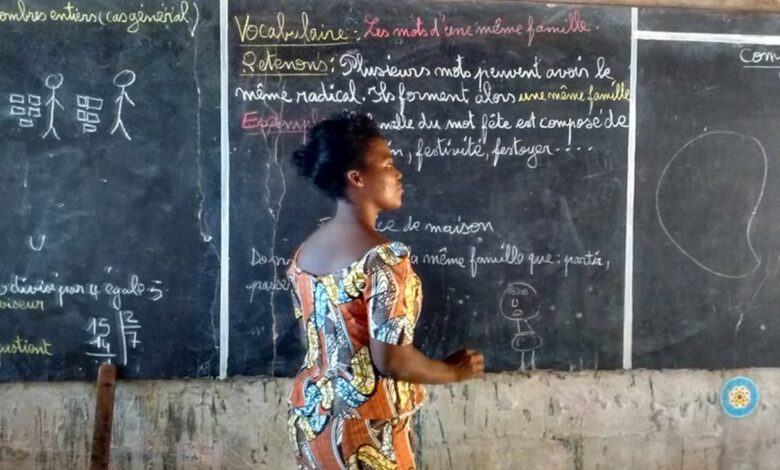 ombres entiers (cas général)
divisé par 4 égale 5
viseur
quotient
15 2
14 7
1
Vocabulaire : Les mots d'une même famille.
Retenons : Plusieurs mots peuvent avoir le
même radical. Ils forment alors une même famille
Exemple du mot fête est composé de
festivité, festoyer ....
ce de maison
a même famille que : partir,
Com